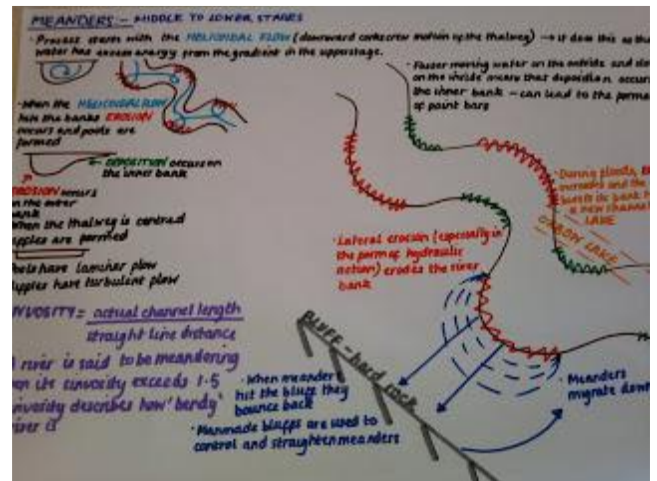 MEANDERS:- MIDDLE TO LOWER STAGES
· Process starts with the HELICOIDAL FLOW (downward corkscrew motion of the thalweg) → it does this as the
water has excess energy from the gradient in the upperstage.
· When the HELICOIDAL FLOW
hits the banks EROSION
occurs and pools are
formed
DEPOSITION occurs on
the inner bank
EROSION occurs
on the outer
bank
When the thalweg is centred
riffles are formed
pools have laminar flow
riffles have turbulent flow
SINUOSITY = actual channel length
straight line distance
A river is said to be meandering
when its sinuosity exceeds 1.5
sinuosity describes how 'bendy'
river is
· Faster moving water on the outside and
on the inside means that deposition occurs
the inner bank - can lead to the
of point bars
· During floods,
increases and the
bursts its bank
a new channel
LAKE
OXBOW LAKE
· Lateral erosion (especially in
the form of hydraulic
action) erodes the river
bank
BLUFF - hard rock
· When meander
hit the bluff they
bounce back
· Manmade bluffs are used to
control and straighten meanders
· Meanders
migrate down